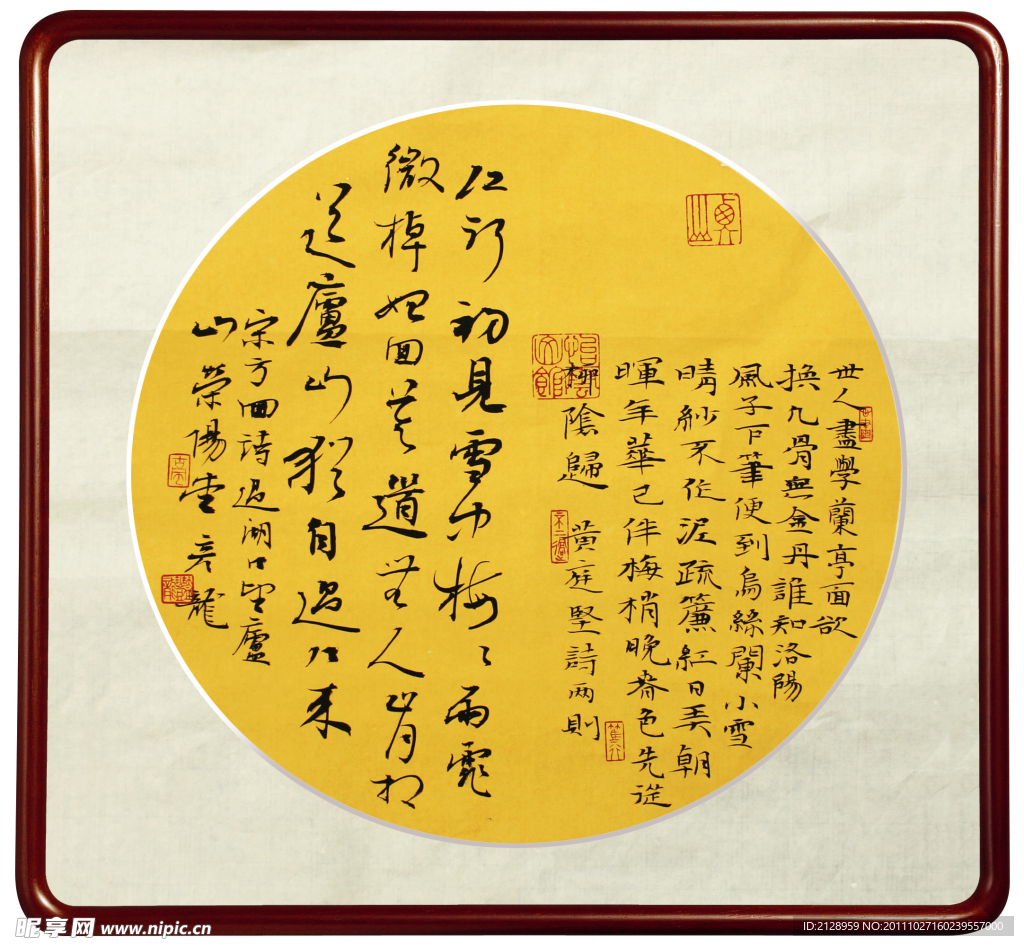 世人盡學蘭亭面欲
換凡骨無金丹誰知洛陽
風子下筆便到烏絲闌小雪
晴紗不作泥疏簾紅日弄朝
暉年華已伴梅梢晚春色先從
柳陰歸 黃庭堅詩兩則
江行初見雪中梅〻雨霏
微棹始回莫道無人肯相
送廬山猶自過江來
宋方回詩過湖口望廬
山 榮陽堂彥龍
昵享网 www.nipic.cn
ID:2128959 NO:20111027160239557000